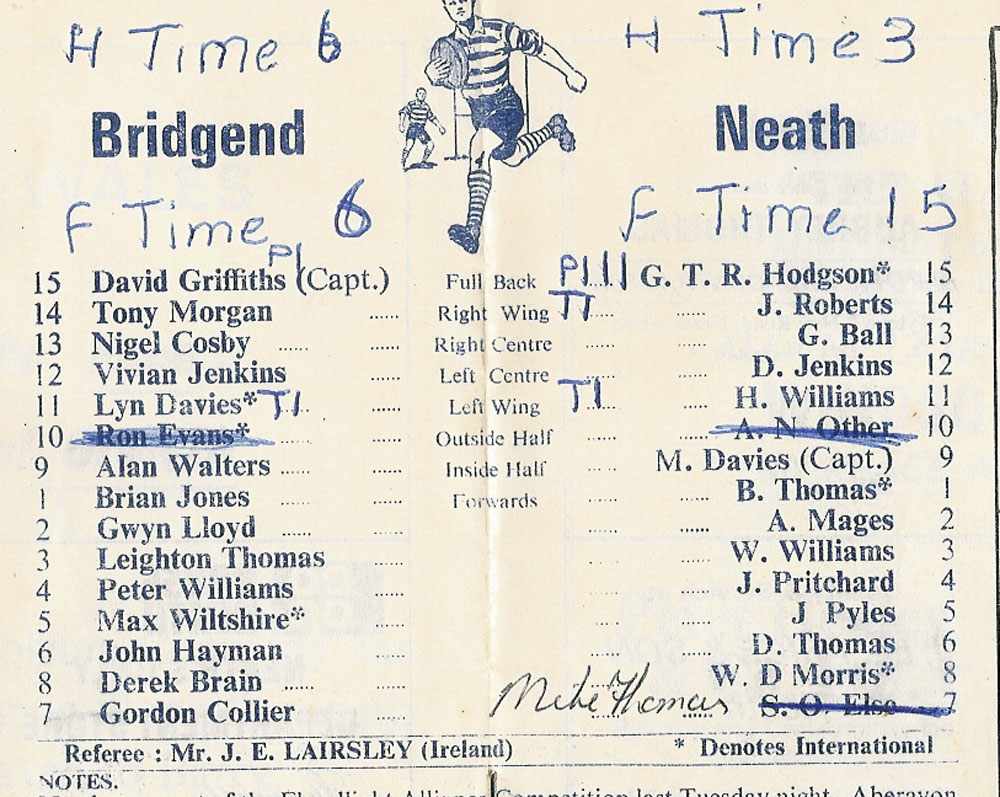 H Time 6 H Time 3
Bridgend Neath
F Time 6 F Time 15
P1
15 David Griffiths (Capt.) Full Back P111 G. T. R. Hodgson* 15
14 Tony Morgan ...... Right Wing T1 ...... J. Roberts 14
13 Nigel Cosby ...... ...... Right Centre ...... ...... G. Ball 13
12 Vivian Jenkins ...... Left Centre ...... D. Jenkins 12
11 Lyn Davies* T1 ...... Left Wing T1 ...... H. Williams 11
10 Ron Evans* ...... ...... Outside Half ...... A. N. Other 10
9 Alan Walters ...... ...... Inside Half ...... M. Davies (Capt.) 9
1 Brian Jones ...... ...... Forwards ...... ...... B. Thomas* 1
2 Gwyn Lloyd ...... ...... ...... ...... A. Mages 2
3 Leighton Thomas ...... ...... ...... W. Williams 3
4 Peter Williams ...... ...... ...... J. Pritchard 4
5 Max Wiltshire* ...... ...... ...... J Pyles 5
6 John Hayman ...... ...... ...... D. Thomas 6
8 Derek Brain ...... ...... ...... W. D Morris* 8
7 Gordon Collier ...... Mike Thomas S. O. Else 7
Referee : Mr. J. E. LAIRSLEY (Ireland) * Denotes International
NOTES.
last Tuesday night Aberavon